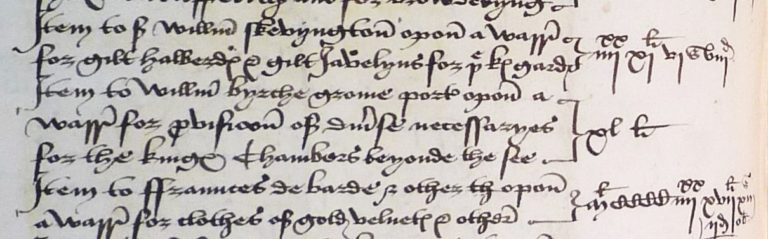 Item to S Willm̄ Skevyngton̄ opon̄ a warr̄
for gilt halberdꝭ & gilt Javelyns for þe kꝭ gardꝭ iiij xx xj li vj s viij d
Item to Willm̄ Byrche grome port opon̄ a
warr̄ for ꝓvisioon̄ of div̄se necessaryes xl li
for the kingꝭ Chambers beyonde the see
Item to ffraunces de barde & other th opon̄
a warr̄ for clothes of gold velvetꝭ & other̄